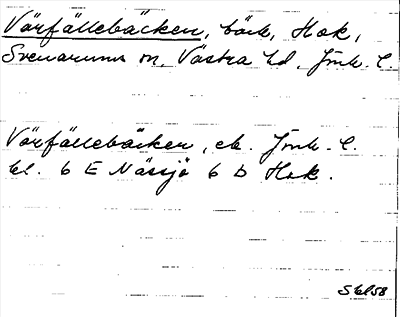 Vårfällebäcken, bäck, Hok,
Svenarums sn, Västra hd, Jönk. l.
Vårfällebäcken, ek. Jönk. l.
bl. 6 E Nässjö 6 b Hok.
Skbl 58